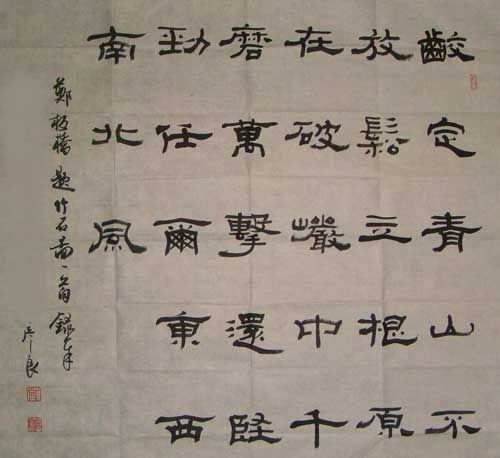 齩定青山不
放鬆立根原
在破巖中千
磨萬擊還堅
勁任爾東西
南北風
鄭板橋題竹石圖一首